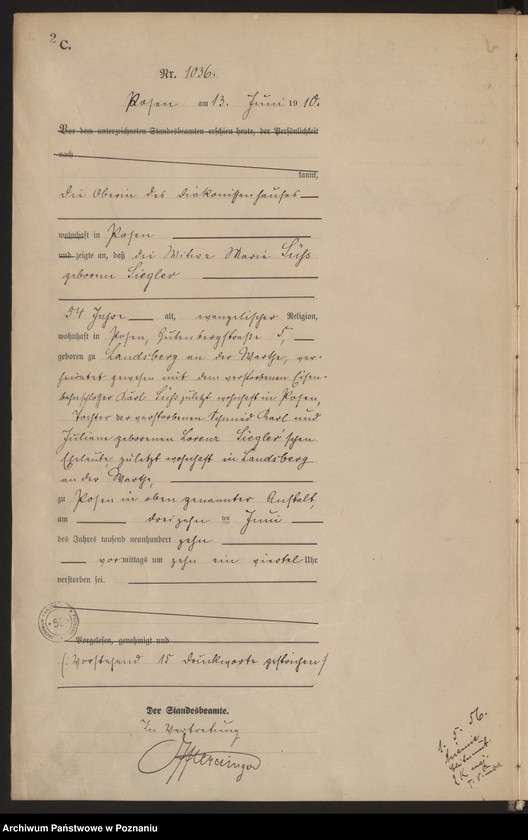 2
C.
Nr. 1036.
Posen am 13. Juni 1910.
Vor dem unterzeichneten Standesbeamten erschien heute, der Persönlichkeit
nach
kannt,
die Oberin des Diakonissenhauses
wohnhaft in Posen
und zeigte an, daß die Witwe Marie Süß
geborene Siegler
54 Jahre alt, evangelischer Religion,
wohnhaft in Posen, Gutenbergstraße 5,
geboren zu Landsberg an der Warthe, ver-
heiratet gewesen mit dem verstorbenen Eisen-
bahnschlosser Karl Süß zuletzt wohnhaft in Posen,
Tochter der verstorbenen Schmied Karl und
Juliane geborenen Lorenz Siegler'schen
Eheleute, zuletzt wohnhaft in Landsberg
an der Warthe,
zu Posen in oben genannter Anstalt,
am dreizehn ten Juni
des Jahres tausend neunhundert zehn
vormittags um zehn ein viertel Uhr
verstorben sei.
Vorgelesen, genehmigt und
(: Vorstehend 15 Druckworte gestrichen /
Der Standesbeamte.
In Vertretung
5. 56.
Archiwum Państwowe w Poznaniu